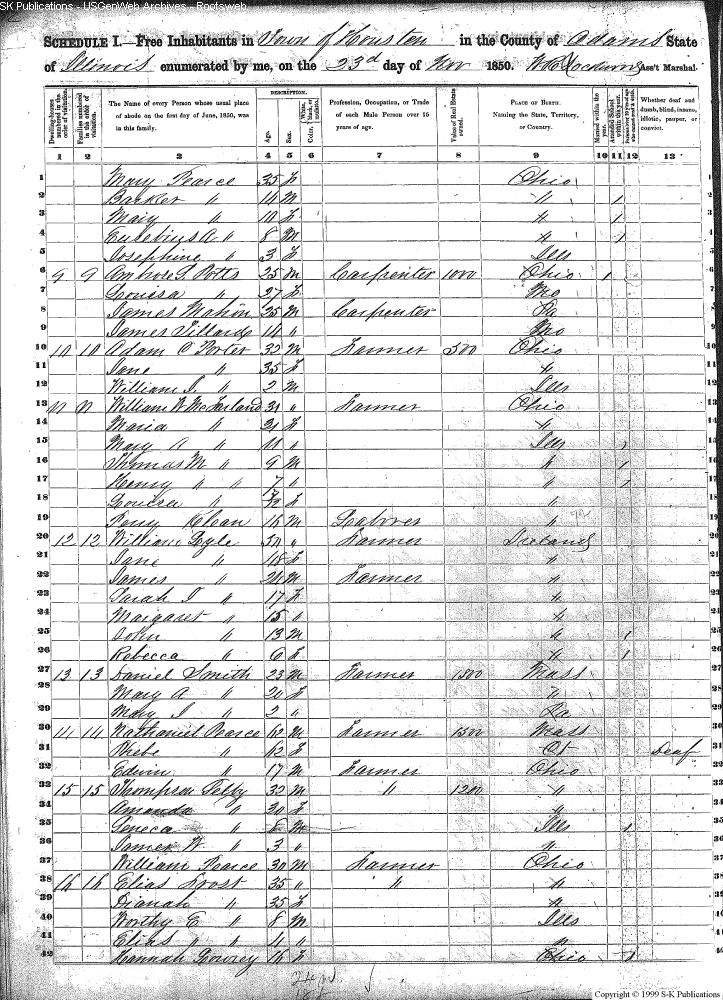 SK Publications - USGenWeb Archives - Rootsweb
SCHEDULE I.—Free Inhabitants in Town of Houston in the County of Adams State
of Illinois enumerated by me, on the 23d day of Nov 1850. Ass't Marshal.
Dwelling-houses numbered in the order of visitation.
Families numbered in the order of visitation.
The Name of every Person whose usual place of abode on the first day of June, 1850, was in this family.
DESCRIPTION.
Age.
Sex.
Color, White, black, or mulatto.
Profession, Occupation, or Trade of each Male Person over 15 years of age.
Value of Real Estate owned.
PLACE OF BIRTH. Naming the State, Territory, or Country.
Married within the year.
Attended School within the year.
Whether deaf and dumb, blind, insane, idiotic, pauper, or convict.
1 2 3 4 5 6 7 8 9 10 11 12 13
1 Mary Pearce 35 f Ohio 1
2 Barker " 14 m " 1 2
3 Mary " 10 f " 1 3
4 Eusebius A " 8 m " 1 4
5 Josephine " 3 f Ills 5
6 9 9 Potts 25 m Carpenter 1000 Ohio 1 6
7 Louisa " 27 f Mo 7
8 James Mahon 25 m Carpenter Pa 8
9 James 14 " Mo 9
10 10 10 Adam C Porter 32 m Farmer 500 Ohio 10
11 Jane " 35 f " 11
12 William S " 2 m Ills 12
13 11 11 William W McFarland 31 " Farmer Ohio 13
14 Maria " f " 14
15 Mary A " 11 " Ills 1 15
16 Thomas M " 9 m " 1 16
17 Henry " " 7 " " 1 17
18 Louisa " f " 18
19 Clean 16 m Laborer " 19
20 12 12 William Lyle " Farmer Ireland 20
21 Jane " 18 f " 21
22 James " m Farmer " 22
23 Sarah J " 17 f " 23
24 Margaret " 15 " " 24
25 John " 13 m " 1 25
26 Rebecca " 6 f " 1 26
27 13 13 Daniel Smith 23 m Farmer 1800 Mass 27
28 Mary A " 20 f " 28
29 Mary J " 2 " Pa 29
30 14 14 Nathaniel Pearce 62 m Farmer 1500 Mass 30
31 Phebe " 62 f Ct Deaf 31
32 Edwin " 17 m Farmer Ohio 32
33 15 15 Thompson 32 m " 1200 " 33
34 Amanda " 30 f " 34
35 Seneca " 6 m Ills 1 35
36 James W " 3 " " 36
37 William Pearce 30 m Farmer Ohio 37
38 16 16 Elias Frost 35 " " " 38
39 Dianah " 35 f " 39
40 Worthy E " 8 m Ills 40
41 Elias " " 4 " " 41
42 Hannah Lowrey 16 f Ohio 1 42
Copyright © 1999 S-K Publications